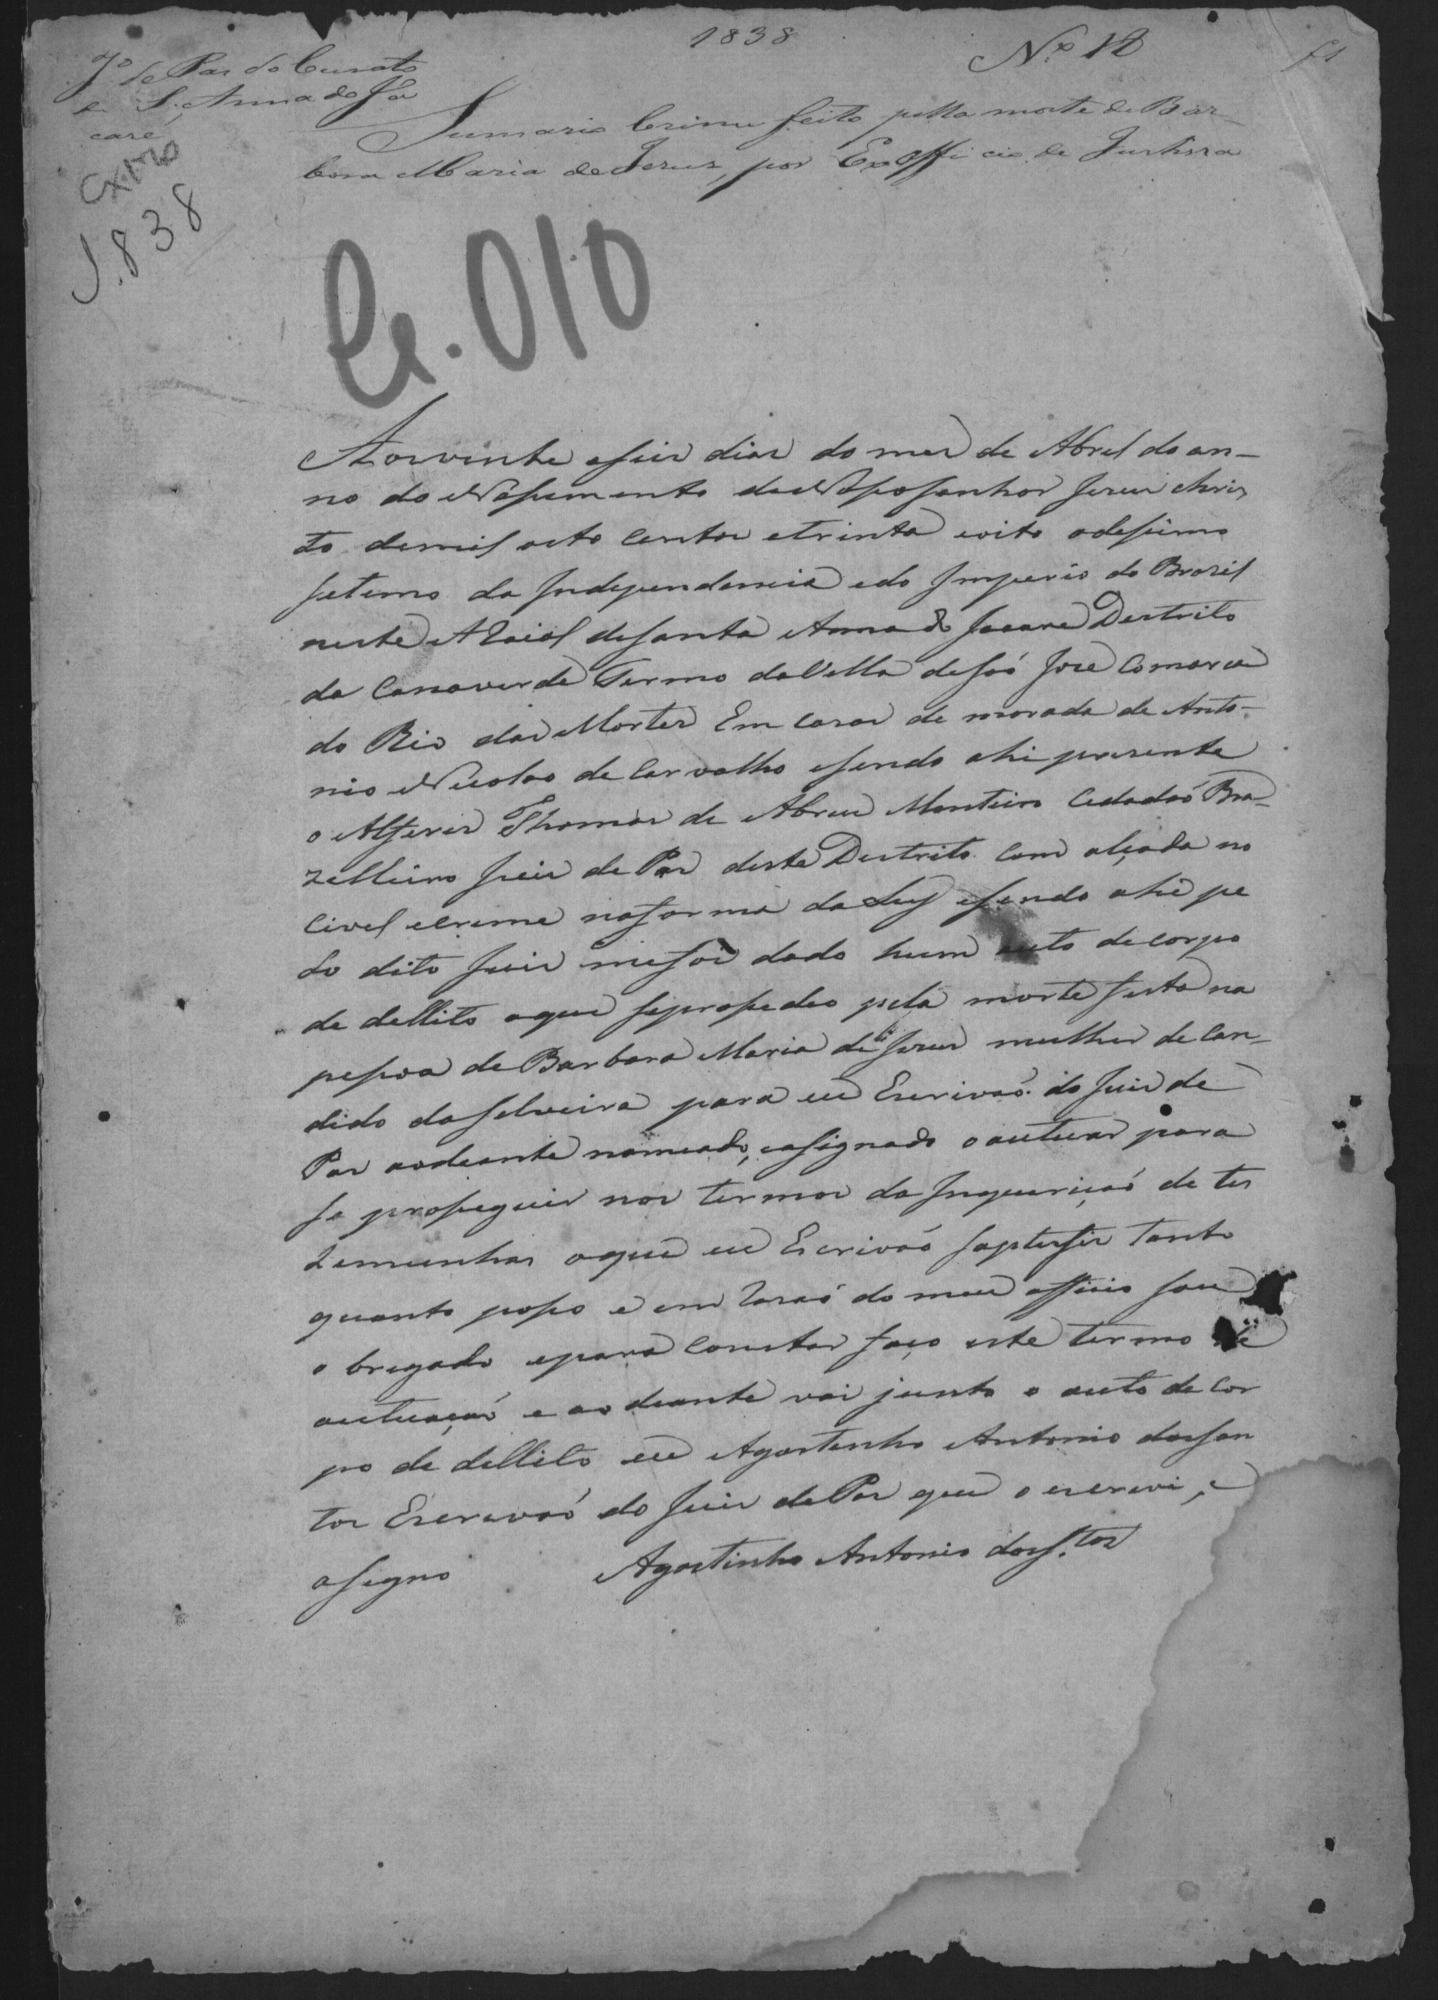 1838
Nº 18
f1
Jº de Paz do Curato
de S. Anna do Ja
caré
1838
Sumario Crime feito pella morte de Bar_
bora Maria de Jesus, por Exofficio de Justissa
Cx. 010
Aos vinte e seis dias do mes de Abril do an_
no do Nassimento de Nosso Senhor Jesus Chris
to demil oito centos e trinta e oito odessimo
setimo da Independencia e do Imperio do Brazil
neste ARaial de Santa Anna do Jacaré Destrito
da Cana verde Termo da Villa de Saó José Comarca
do Rio das Mortes Em casas de morada de Anto_
nio Nicolao de Carvalho esendo ahi presente
o Alferes Thomas de Abreu Monteiro Cidadaó Bra_
zilleiro Juis de Paz deste Destrito com alçada no
Civel e crime na forma da Ley esendo ahi pe
lo dito Juis me foi dado hum auto de corpo
de dellito aque se prosedeo pela morte feita na
pessoa de Barbara Maria de Jesus mulher de Can_
dido da Silveira para eu Escrivaó do Juis de
Paz aodeante nomeado, easignado o autuar para
se proseguir nos termos da Inqueriçaó de tes
temunhas oque eu Escrivaó satisfis tanto
quanto posso e em razaó do meu officio sou
obregado epara constar faço este termo de
autuaçaó e ao deante vai junto o auto de cor
po de dellito eu Agostinho Antonio dos San
tos Escrevaó do Juis de Paz que o escrevi, e
asegno Agostinho Antonio dos S.tos